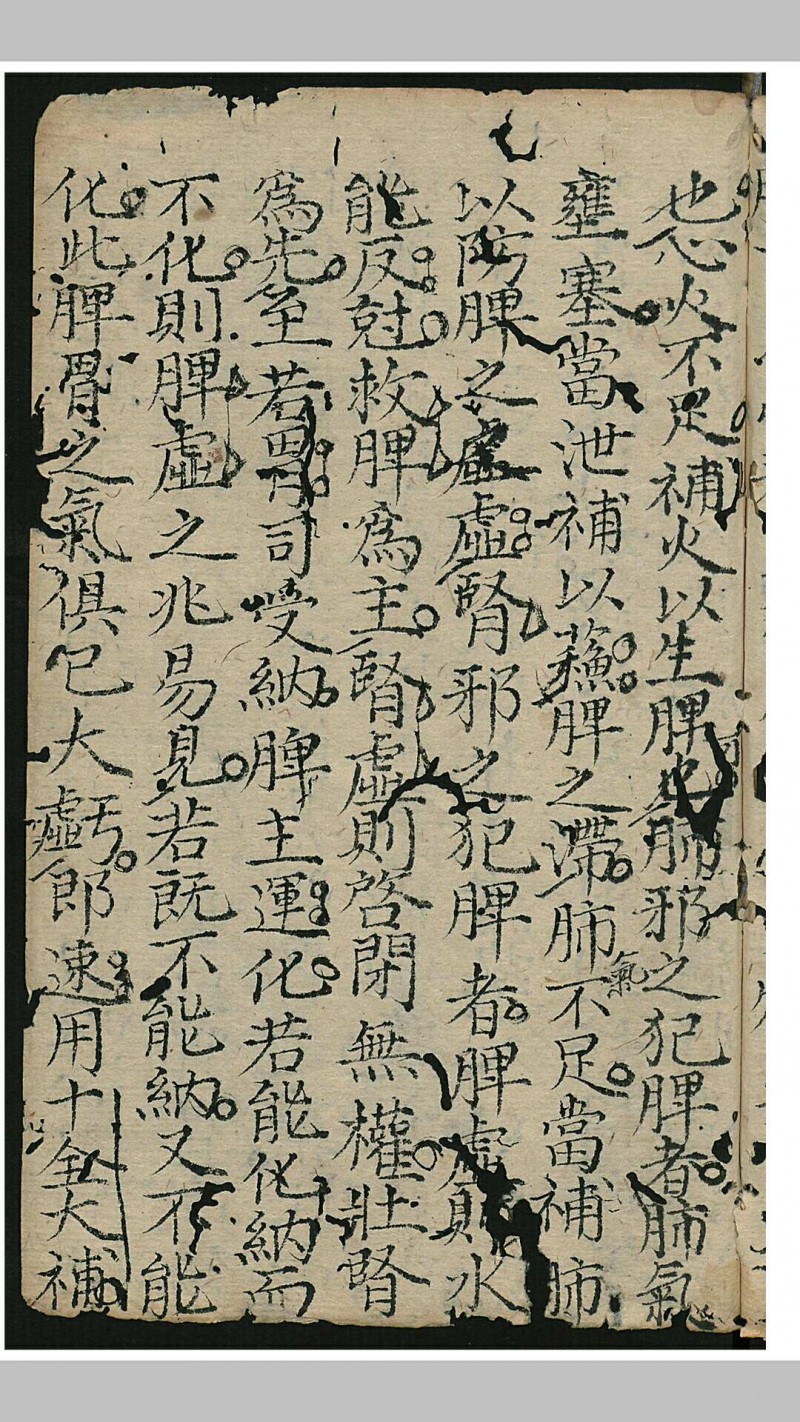 也心火不足補火以生脾也肺邪之犯脾者肺氣
壅塞當泄補以蘓脾之滯肺氣不足當補肺
以防脾之虛虛腎邪之犯脾者脾虛則水
能反尅救脾為主腎虛則啓閉無權壯腎
為先至若胃司受納脾主運化若能化納而
不化則脾虛之兆易見若既不能納又不能
化此脾胃之氣俱已大虧郎速用十全大補